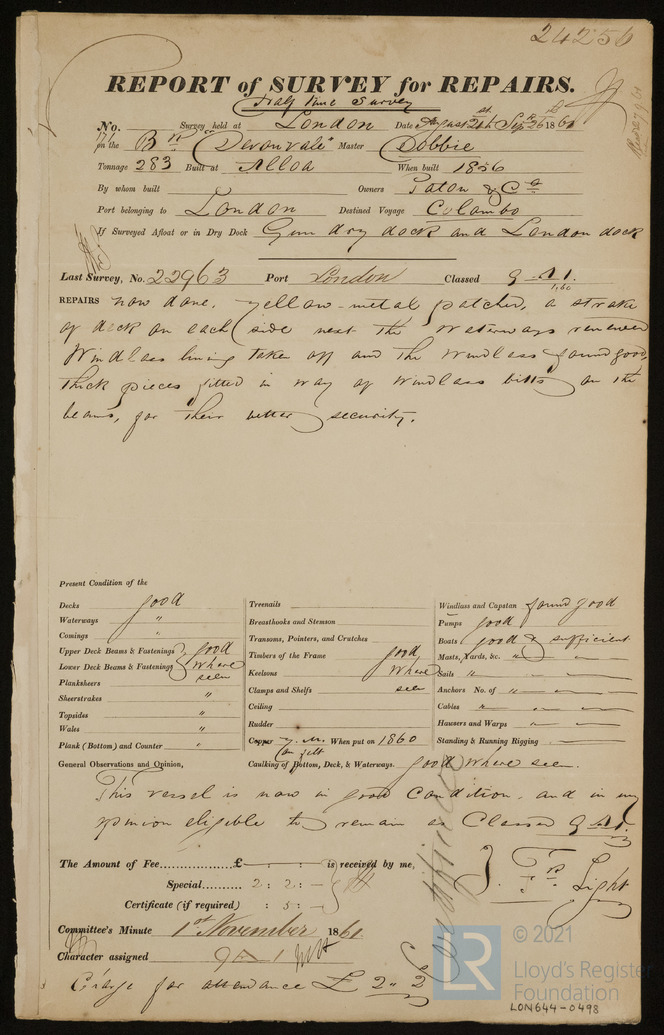 24256
REPORT of SURVEY for REPAIRS.
Half Time Survey
No. Survey held at London Date August 21st Sep 26 1861
on the Bn "Devonvale" Master Dobbie
Tonnage 283 Built at Alloa When built 1856
By whom built Owners Paton & Co
Port belonging to London Destined Voyage Colombo
If Surveyed Afloat or in Dry Dock Gun dry dock and London dock
Last Survey, No. 22963 Port London Classed 9 A1.
1,60
REPAIRS now done, yellow-metal patched, a strake
of deck on each side next the Waterways renewed
Windlass lining taken off and the windlass found good,
thick pieces fitted in way of windlass bitts on the
beams, for their better security.
Present Condition of the
Decks good
Waterways "
Comings "
Upper Deck Beams & Fastenings good
Lower Deck Beams & Fastenings where
Planksheers seen
Sheerstrakes "
Topsides "
Wales "
Plank (Bottom) and Counter "
Treenails
Breasthooks and Stemson
Transoms, Pointers, and Crutches
Timbers of the Frame good
Keelsons where
Clamps and Shelfs seen
Ceiling
Rudder
Copper y.m. When put on 1860
on felt
Windlass and Capstan found good
Pumps good
Boats good & sufficient
Masts, Yards, &c. "
Sails "
Anchors No. of "
Cables "
Hausers and Warps
Standing & Running Rigging
General Observations and Opinion, Caulking of Bottom, Deck, & Waterways. good where seen.
This vessel is now in good condition. and in my
opinion eligible to remain as Classed 9 A1.
The Amount of Fee......£ : : is received by me,
Special.......... 2 : 2 : -
Certificate (if required) : 5 : -
Light
Certificate
Committee's Minute 1st November 1861
Character assigned 9 A 1
Charge for attendance £ 2 " 2
LR
© 2021
Lloyd's Register
Foundation
LON644-0498